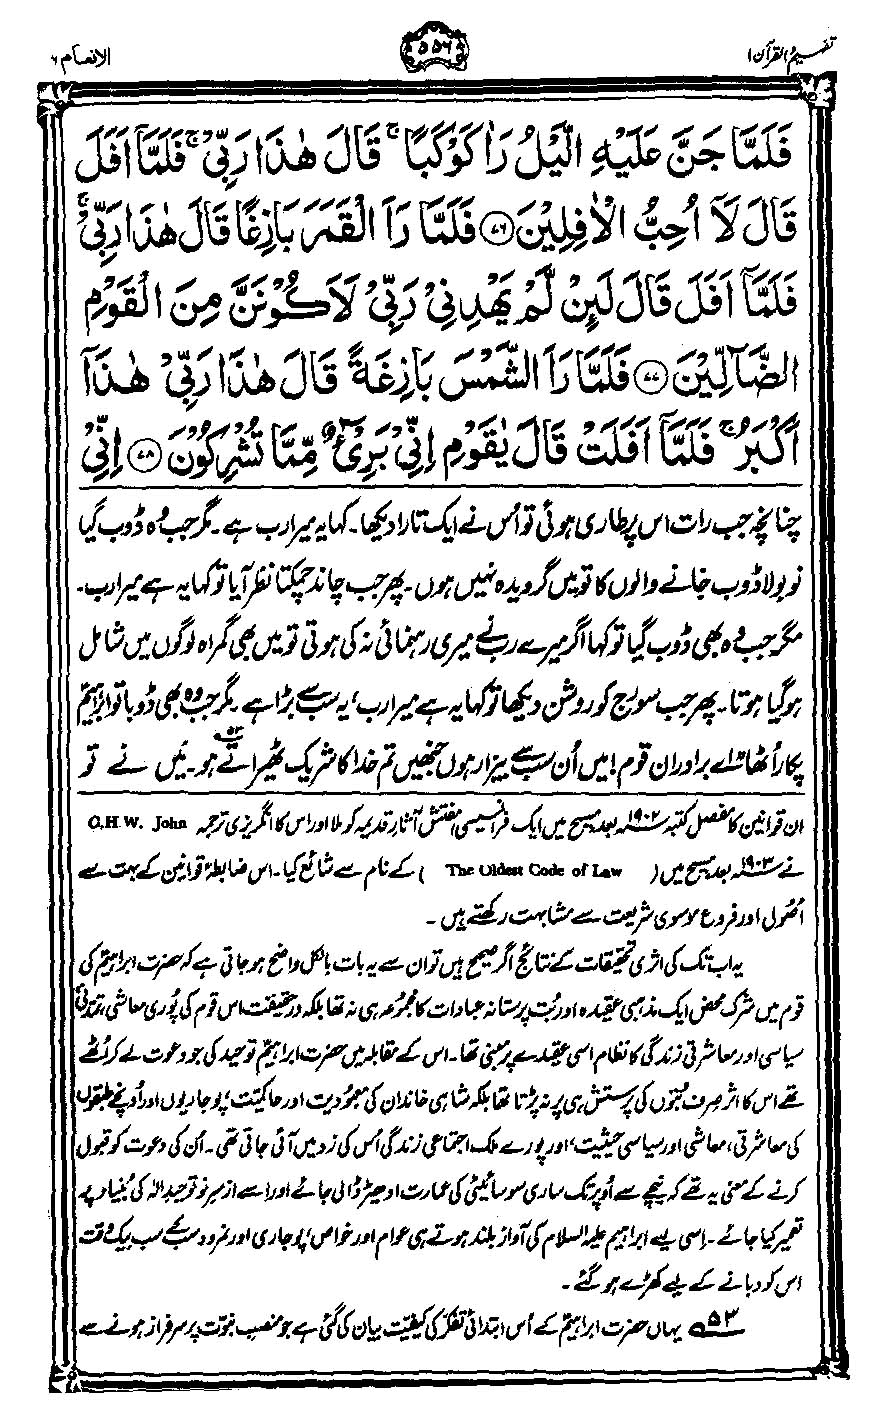 تفہیم القرآن ۱
۵۵۶
الانعام ۶
فَلَمَّا جَنَّ عَلَيْهِ الَّيْلُ رَاٰ كَوْكَبًا ۚ قَالَ هٰذَا رَبِّيْ ۚ فَلَمَّآ اَفَلَ
قَالَ لَآ اُحِبُّ الْاٰفِلِيْنَ ﴿۷۶﴾ فَلَمَّا رَاَ الْقَمَرَ بَازِغًا قَالَ هٰذَا رَبِّيْ ۚ
فَلَمَّآ اَفَلَ قَالَ لَىِٕنْ لَّمْ يَهْدِنِيْ رَبِّيْ لَاَكُوْنَنَّ مِنَ الْقَوْمِ
الضَّآلِّيْنَ ﴿۷۷﴾ فَلَمَّا رَاَ الشَّمْسَ بَازِغَةً قَالَ هٰذَا رَبِّيْ هٰذَآ
اَكْبَرُ ۚ فَلَمَّآ اَفَلَتْ قَالَ يٰقَوْمِ اِنِّيْ بَرِيْٓءٌ مِّمَّا تُشْرِكُوْنَ ﴿۷۸﴾ اِنِّيْ
چنانچہ جب رات اس پر طاری ہوئی تو اُس نے ایک تارا دیکھا۔ کہا یہ میرا رب ہے۔ مگر جب وہ ڈوب گیا
تو بولا ڈوب جانے والوں کا تو میں گرویدہ نہیں ہوں۔ پھر جب چاند چمکتا نظر آیا تو کہا یہ ہے میرا رب۔
مگر جب وہ بھی ڈوب گیا تو کہا اگر میرے رب نے میری رہنمائی نہ کی ہوتی تو میں بھی گمراہ لوگوں میں شامل
ہوگیا ہوتا۔ پھر جب سورج کو روشن دیکھا تو کہا یہ ہے میرا رب، یہ سب سے بڑا ہے۔ مگر جب وہ بھی ڈوبا تو ابراہیمؑ
پکار اُٹھا "اے برادران قوم! میں اُن سب سے بیزار ہوں جنھیں تم خدا کا شریک ٹھیراتے ہو۔۵۳ میں نے تو
ان قوانین کا مفصل کتبہ ۱۹۰۲ء بعد مسیح میں ایک فرانسیسی مفتش آثار قدیمہ کو ملا اور اس کا انگریزی ترجمہ C.H.W. John
نے ۱۹۰۳ء بعد مسیح میں ( The Oldest Code of Law ) کے نام سے شائع کیا۔ اس ضابطۂ قوانین کے بہت سے
اُصول اور فروع موسوی شریعت سے مشابہت رکھتے ہیں۔
یہ اب تک کی اثری تحقیقات کے نتائج اگر صحیح ہیں تو ان سے یہ بات بالکل واضح ہو جاتی ہے کہ حضرت ابراہیمؑ کی
قوم میں شرک محض ایک مذہبی عقیدہ اور بُت پرستانہ عبادات کا مجموعہ ہی نہ تھا بلکہ درحقیقت اس قوم کی پوری معاشی، تمدنی،
سیاسی اور معاشرتی زندگی کا نظام اسی عقیدے پر مبنی تھا۔ اس کے مقابلہ میں حضرت ابراہیمؑ توحید کی جو دعوت لے کر اُٹھے
تھے اس کا اثر صرف بُتوں کی پرستش ہی پر نہ پڑتا تھا بلکہ شاہی خاندان کی معبودیت اور حاکمیت، پوجاریوں اور اُونچے طبقوں
کی معاشرتی، معاشی اور سیاسی حیثیت، اور پورے ملک اجتماعی زندگی اُس کی زد میں آئی جاتی تھی۔ اُن کی دعوت کو قبول
کرنے کے معنی یہ تھے کہ نیچے سے اُوپر تک ساری سوسائیٹی کی عمارت ادھیڑ ڈالی جائے اور اسے ازسرِنو توحیدِ الٰہ کی بنیاد پر
تعمیر کیا جائے۔ اِسی لیے ابراہیم علیہ السلام کی آواز بلند ہوتے ہی عوام اور خواص، پوجاری اور نمرود سب کے سب بیک وقت
اس کو دبانے کے لیے کھڑے ہو گئے۔
۵۳ یہاں حضرت ابراہیمؑ کے اُس ابتدائی تفکر کی کیفیت بیان کی گئی ہے جو منصب نبوت پر سرفراز ہونے سے